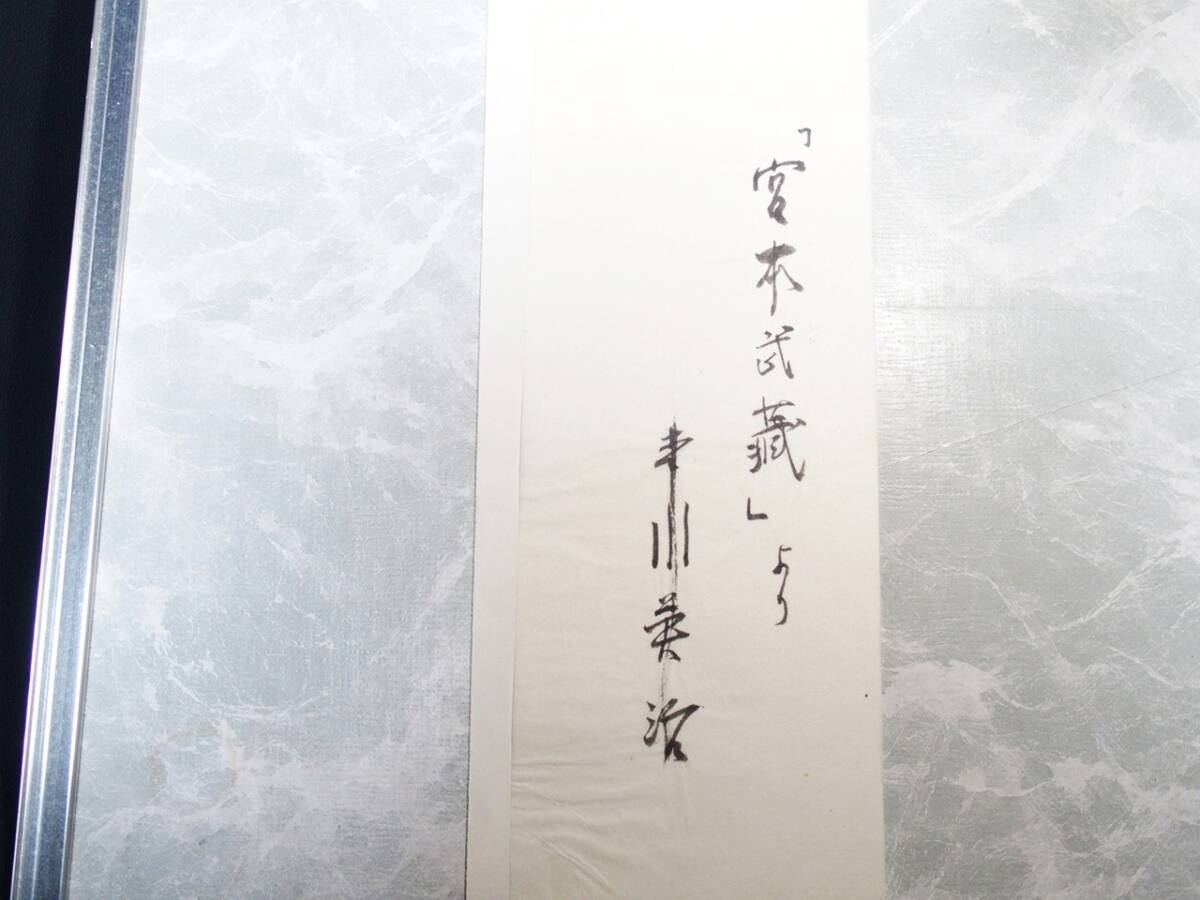 「宮本武藏」より
吉川英治